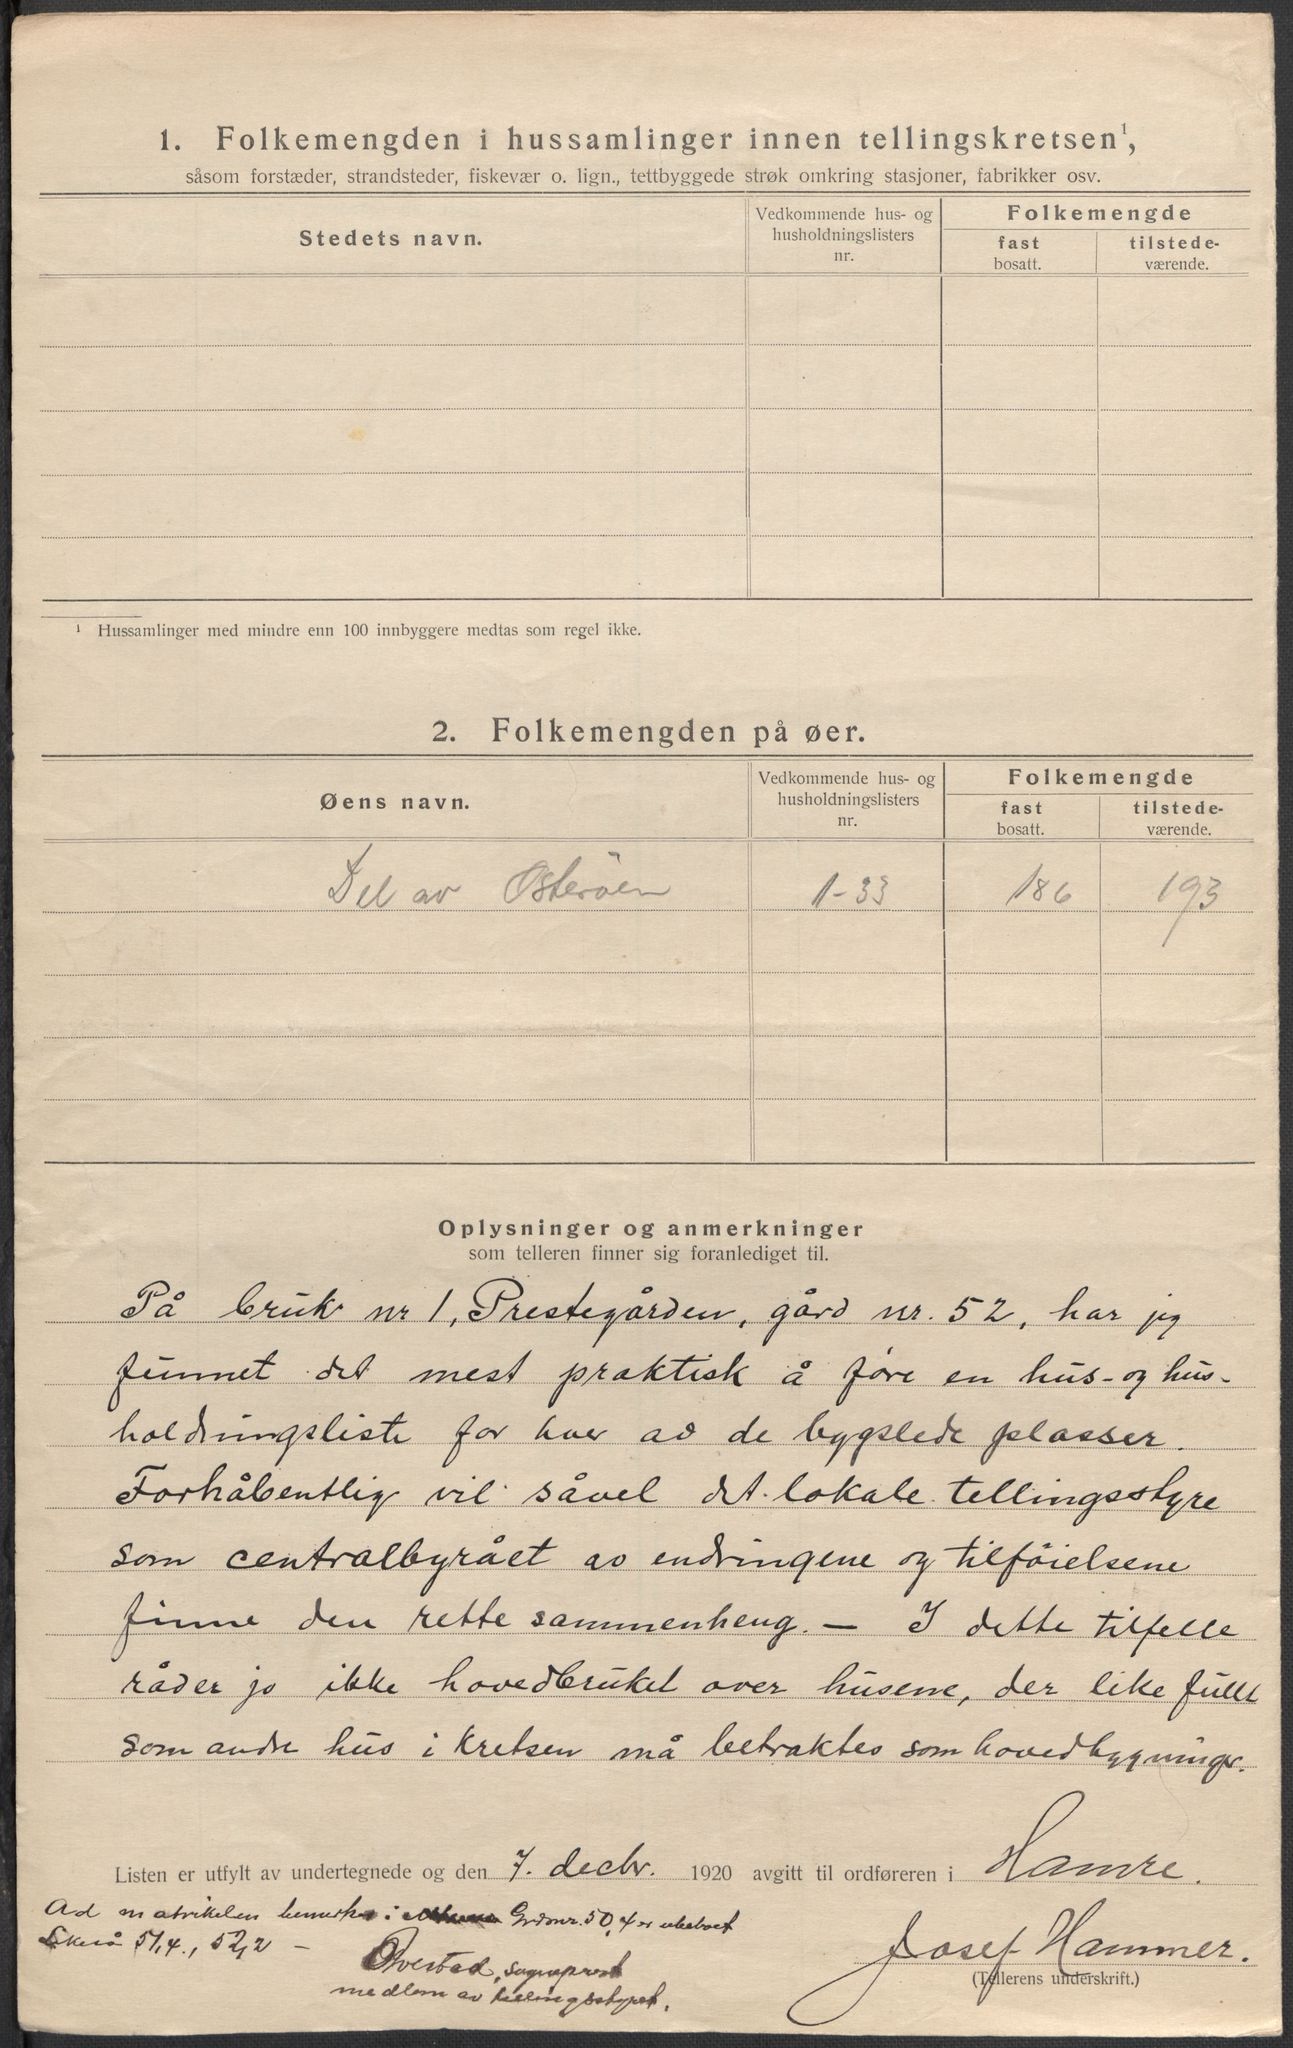 1. Folkemengden i hussamlinger innen tellingskretsen¹,
såsom forstæder, strandsteder, fiskevær o. lign., tettbyggede strøk omkring stasjoner, fabrikker osv.
Stedets navn.
Vedkommende hus- og
husholdningslisters
nr.
Folkemengde
fast
bosatt.
tilstede-
værende.
¹ Hussamlinger med mindre enn 100 innbyggere medtas som regel ikke.
2. Folkemengden på øer.
Øens navn.
Vedkommende hus- og
husholdningslisters
nr.
Folkemengde
fast
bosatt.
tilstede-
værende.
Del av Osteröen 1-33 186 193
Oplysninger og anmerkninger
som telleren finner sig foranlediget til.
På bruk nr 1, Prestegården, gård nr. 52, har jeg
funnet det mest praktisk å føre en hus- og hus-
holdningsliste for hver av de bygslede plasser.
Forhåbentlig vil såvel det lokale tellingsstyre
som centralbyrået av endringene og tilföielsene
finne den rette sammenheng. — I dette tilfelle
råder jo ikke hovedbruket over husene, der like fullt
som andre hus i kretsen må betraktes som hovedbygninger.
Listen er utfylt av undertegnede og den 7. decbr. 1920 avgitt til ordføreren i Hamre.
Ad matrikelen bemerkes: Grdsnr. 50,4 er ubeboet
51,4., 52,2 —
sogneprest
medlem av tellingsstyret.
Josef Hammer.
(Tellerens underskrift.)